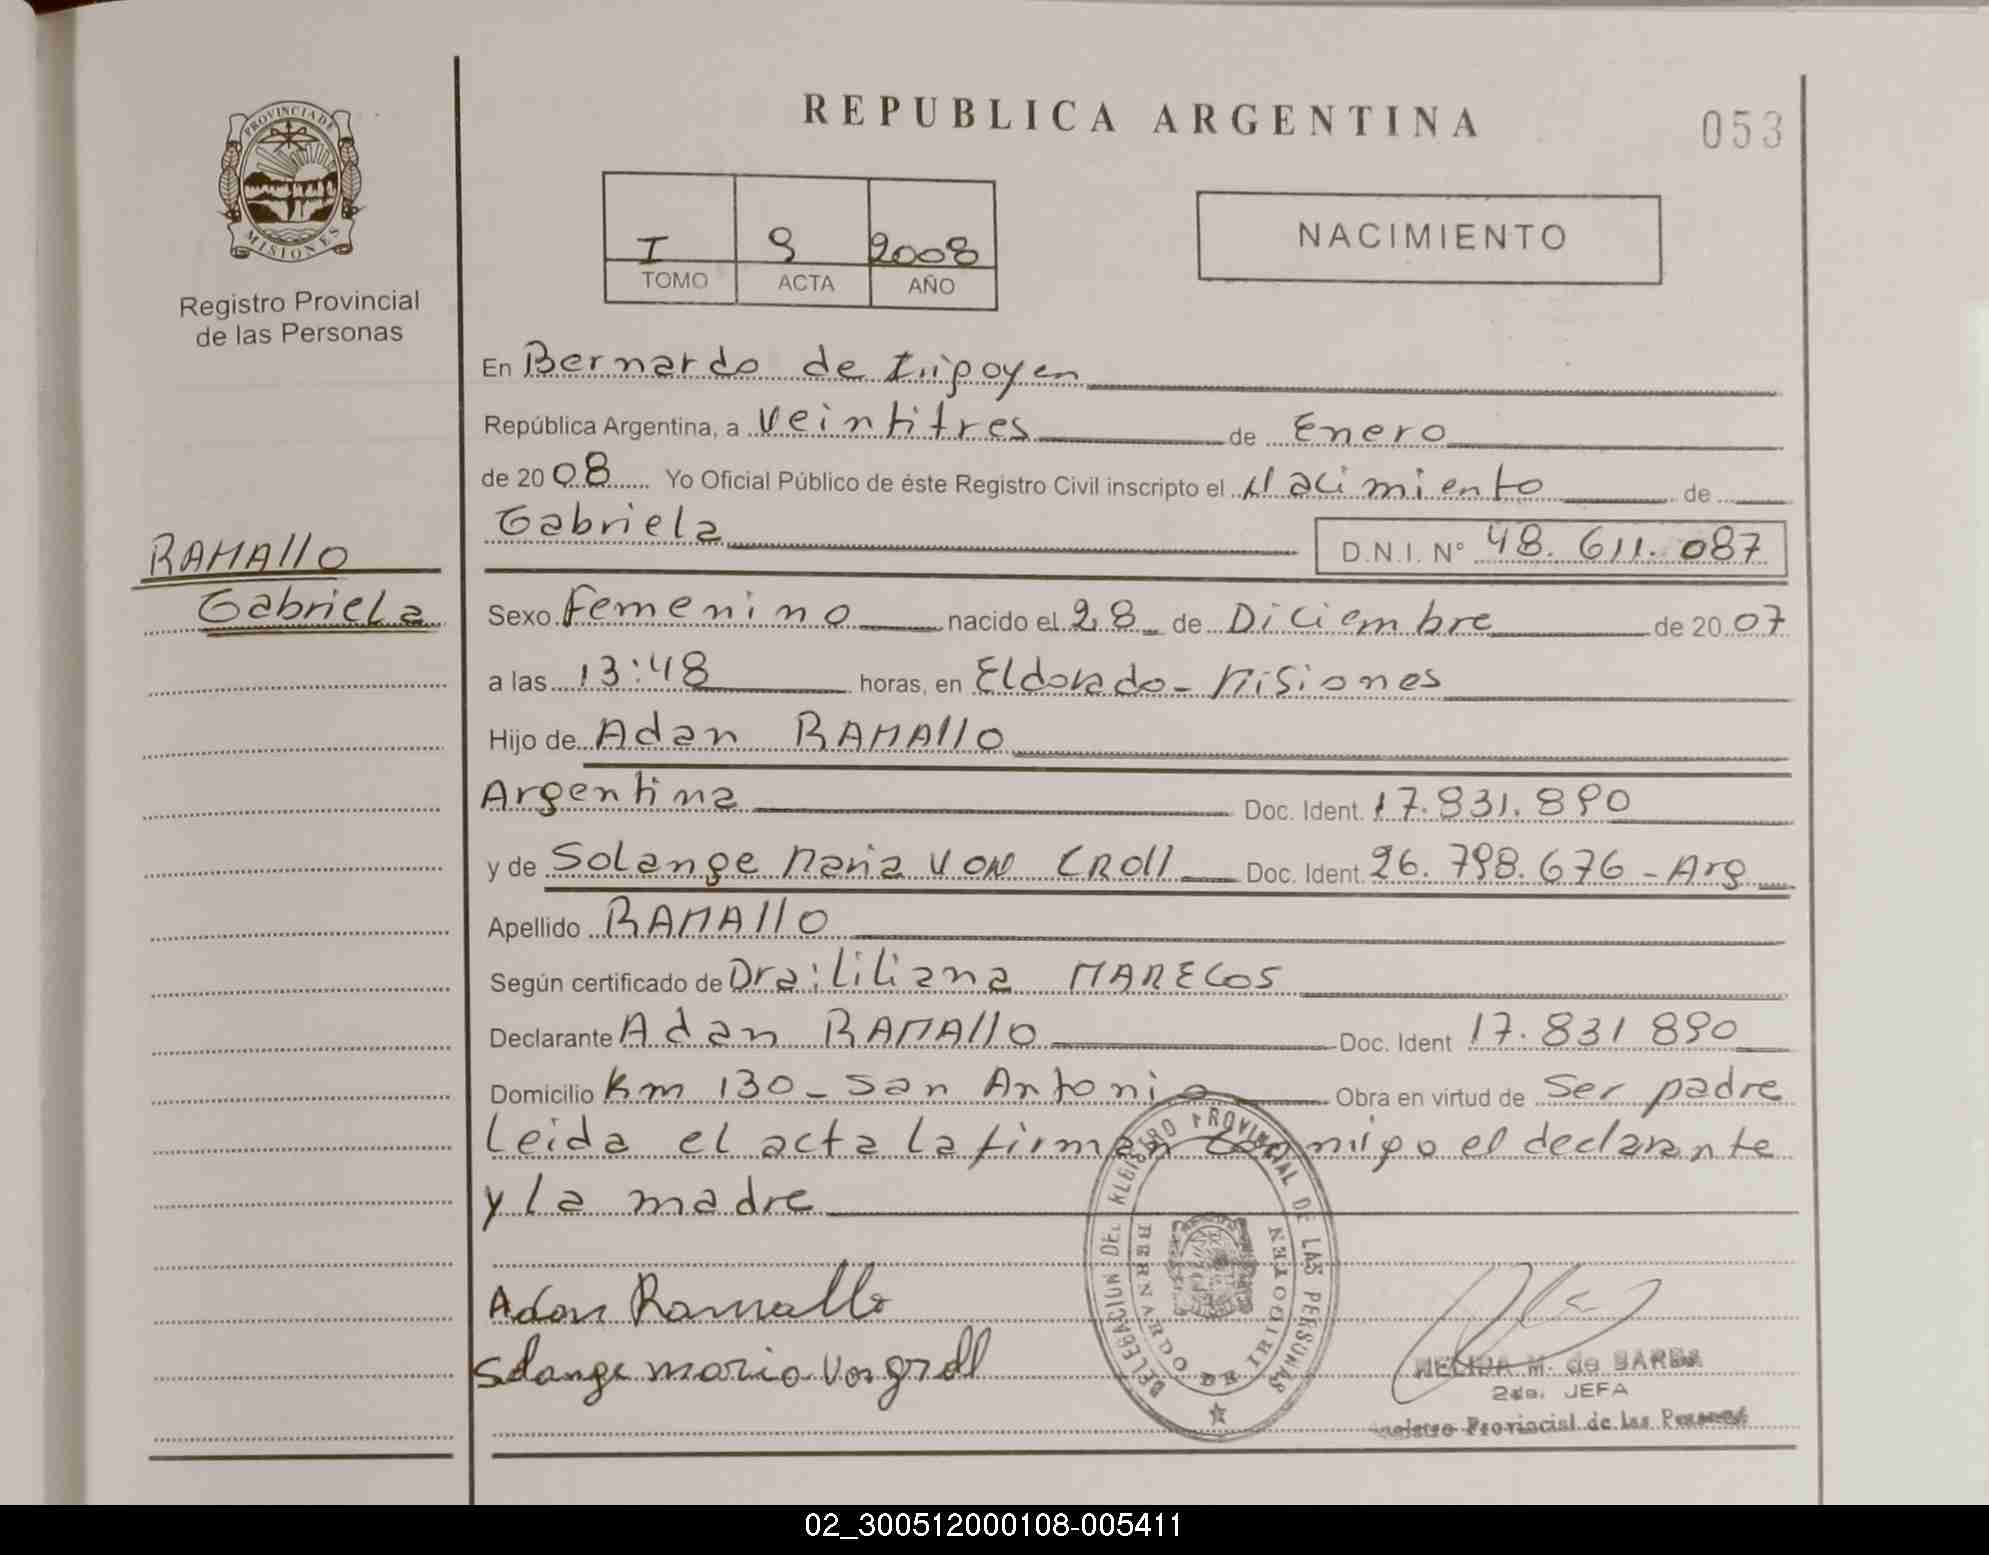 REPUBLICA ARGENTINA
053
PROVINCIA DE
MISIONES
Registro Provincial
de las Personas
I 9 2008
TOMO ACTA AÑO
NACIMIENTO
En Bernardo de Irigoyen
República Argentina, a veintitres de Enero
de 2008 Yo Oficial Público de éste Registro Civil inscripto el Nacimiento de
Gabriela D.N.I. N° 48.611.087
RAMAllO
Gabriela
Sexo Femenino nacido el 28 de Diciembre de 2007
a las 13:48 horas, en Eldorado - Misiones
Hijo de Adan RAMAllO
Argentina Doc. Ident. 17.831.890
y de Solange Maria VON CROll Doc. Ident. 26.798.676 - Arg
Apellido RAMAllO
Según certificado de Dra: Liliana MARECOS
Declarante Adan RAMAllO Doc. Ident 17.831 890
Domicilio Km 130 - San Antonio Obra en virtud de Ser padre
Leida el acta la firman conmigo el declarante
y la madre
DELEGACION DEL REGISTRO PROVINCIAL DE LAS PERSONAS
BERNARDO DE IRIGOYEN
Adan Ramallo
Solange maria Von groll
M. de BARBA
2da. JEFA
Registro Provincial de las Personas
02_300512000108-005411